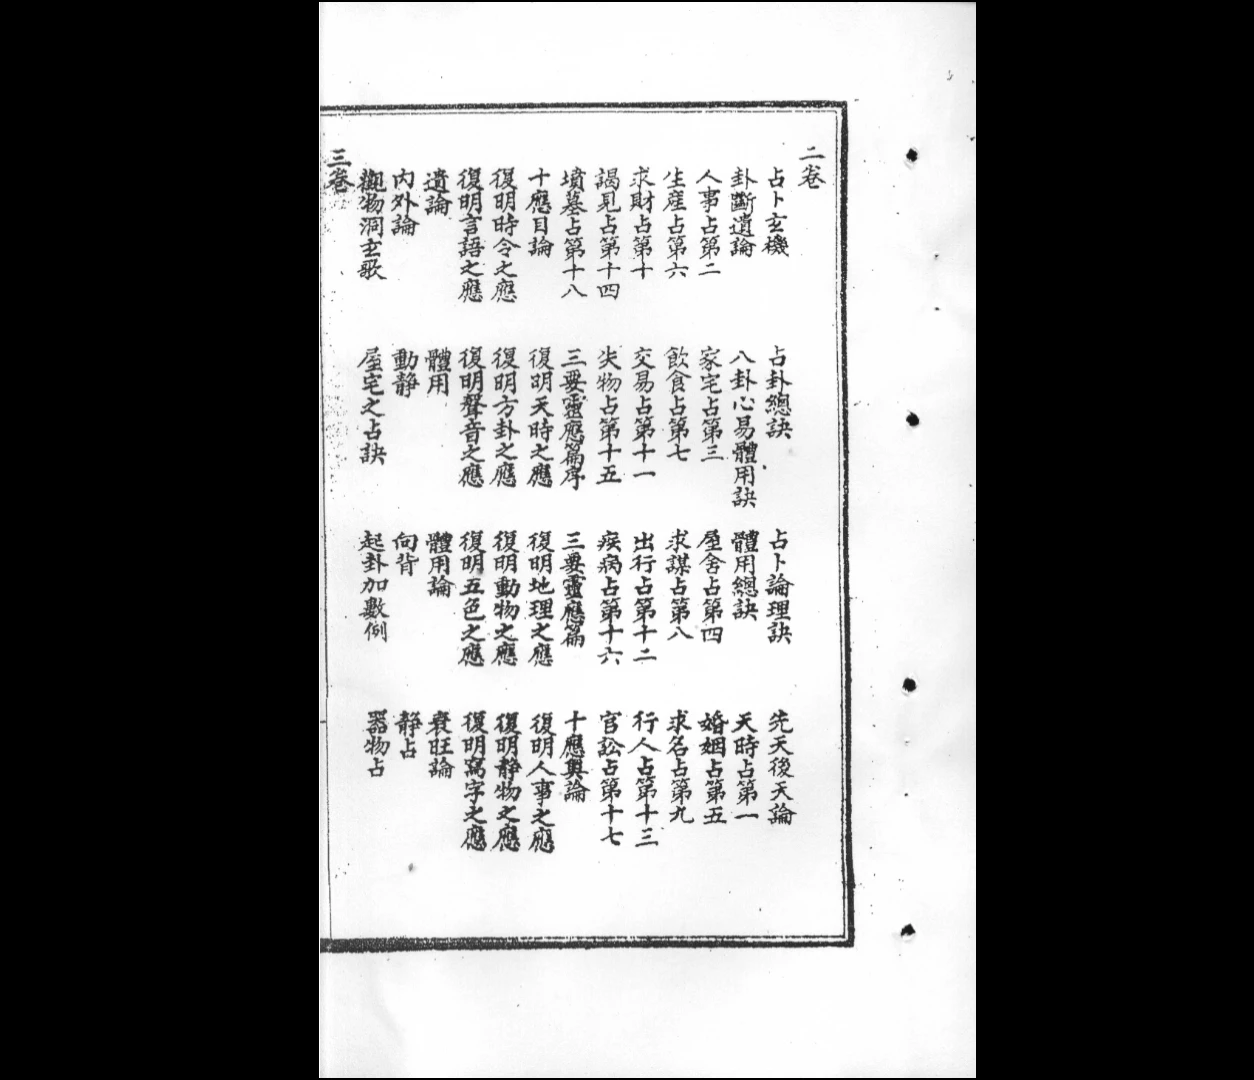 二卷
占卜玄機 占卦總訣 占卜論理訣 先天後天論
卦斷遺論 八卦心易體用訣 體用總訣 天時占第一
人事占第二 家宅占第三 屋舍占第四 婚姻占第五
生產占第六 飲食占第七 求謀占第八 求名占第九
求財占第十 交易占第十一 出行占第十二 行人占第十三
謁見占第十四 失物占第十五 疾病占第十六 官訟占第十七
墳墓占第十八 三要靈應篇序 三要靈應篇 十應奧論
十應目論 復明天時之應 復明地理之應 復明人事之應
復明時令之應 復明方卦之應 復明動物之應 復明靜物之應
復明言語之應 復明聲音之應 復明五色之應 復明寫字之應
遺論 體用 體用論 衰旺論
內外論 動靜 向背 靜占
觀物洞玄歌 屋宅之占訣 起卦加數例 器物占
三卷